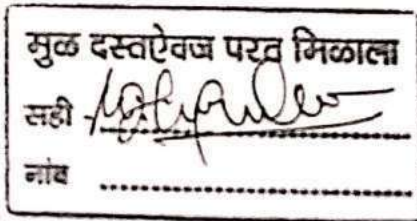 मुळ दस्तऐवज परत मिळाला
सही
नांव